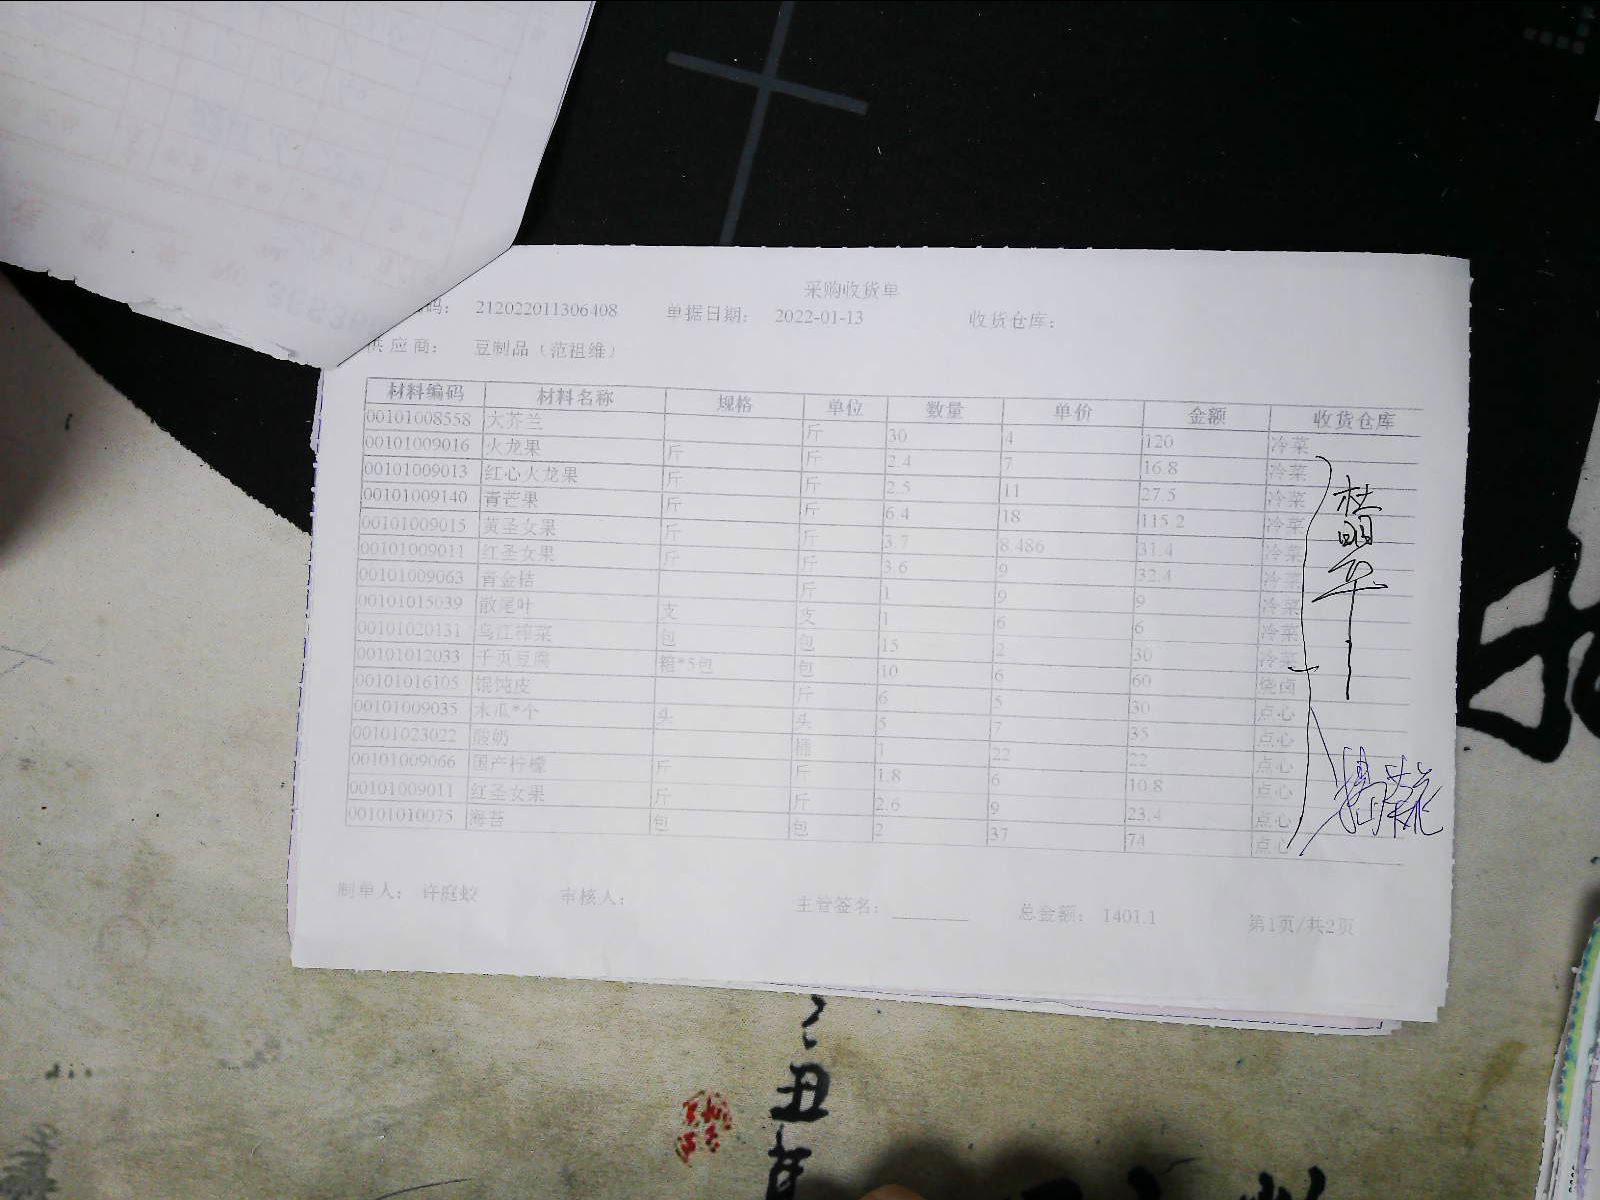 采购收货单
码： 212022011306408 单据日期： 2022-01-13 收货仓库：
供应商： 豆制品（范祖维）
材料编码 材料名称 规格 单位 数量 单价 金额 收货仓库
00101008558 大芥兰 斤 30 4 120 冷菜
00101009016 火龙果 斤 斤 2.4 7 16.8 冷菜
00101009013 红心火龙果 斤 斤 2.5 11 27.5 冷菜
00101009140 青芒果 斤 斤 6.4 18 115.2 冷菜
00101009015 黄圣女果 斤 斤 3.7 8.486 31.4 冷菜
00101009011 红圣女果 斤 斤 3.6 9 32.4 冷菜
00101009063 青金桔 斤 1 9 9 冷菜
00101015039 散尾叶 支 支 1 6 6 冷菜
00101020131 乌江榨菜 包 包 15 2 30 冷菜
00101012033 千页豆腐 箱*5包 包 10 6 60 烧卤
00101016105 馄饨皮 斤 6 5 30 点心
00101009035 木瓜*个 头 头 5 7 35 点心
00101023022 酸奶 桶 1 22 22 点心
00101009066 国产柠檬 斤 斤 1.8 6 10.8 点心
00101009011 红圣女果 斤 斤 2.6 9 23.4 点心
00101010075 海苔 包 包 2 37 74 点心
制单人： 许庭蛟 审核人： 主管签名： 总金额： 1401.1 第1页/共2页
丑